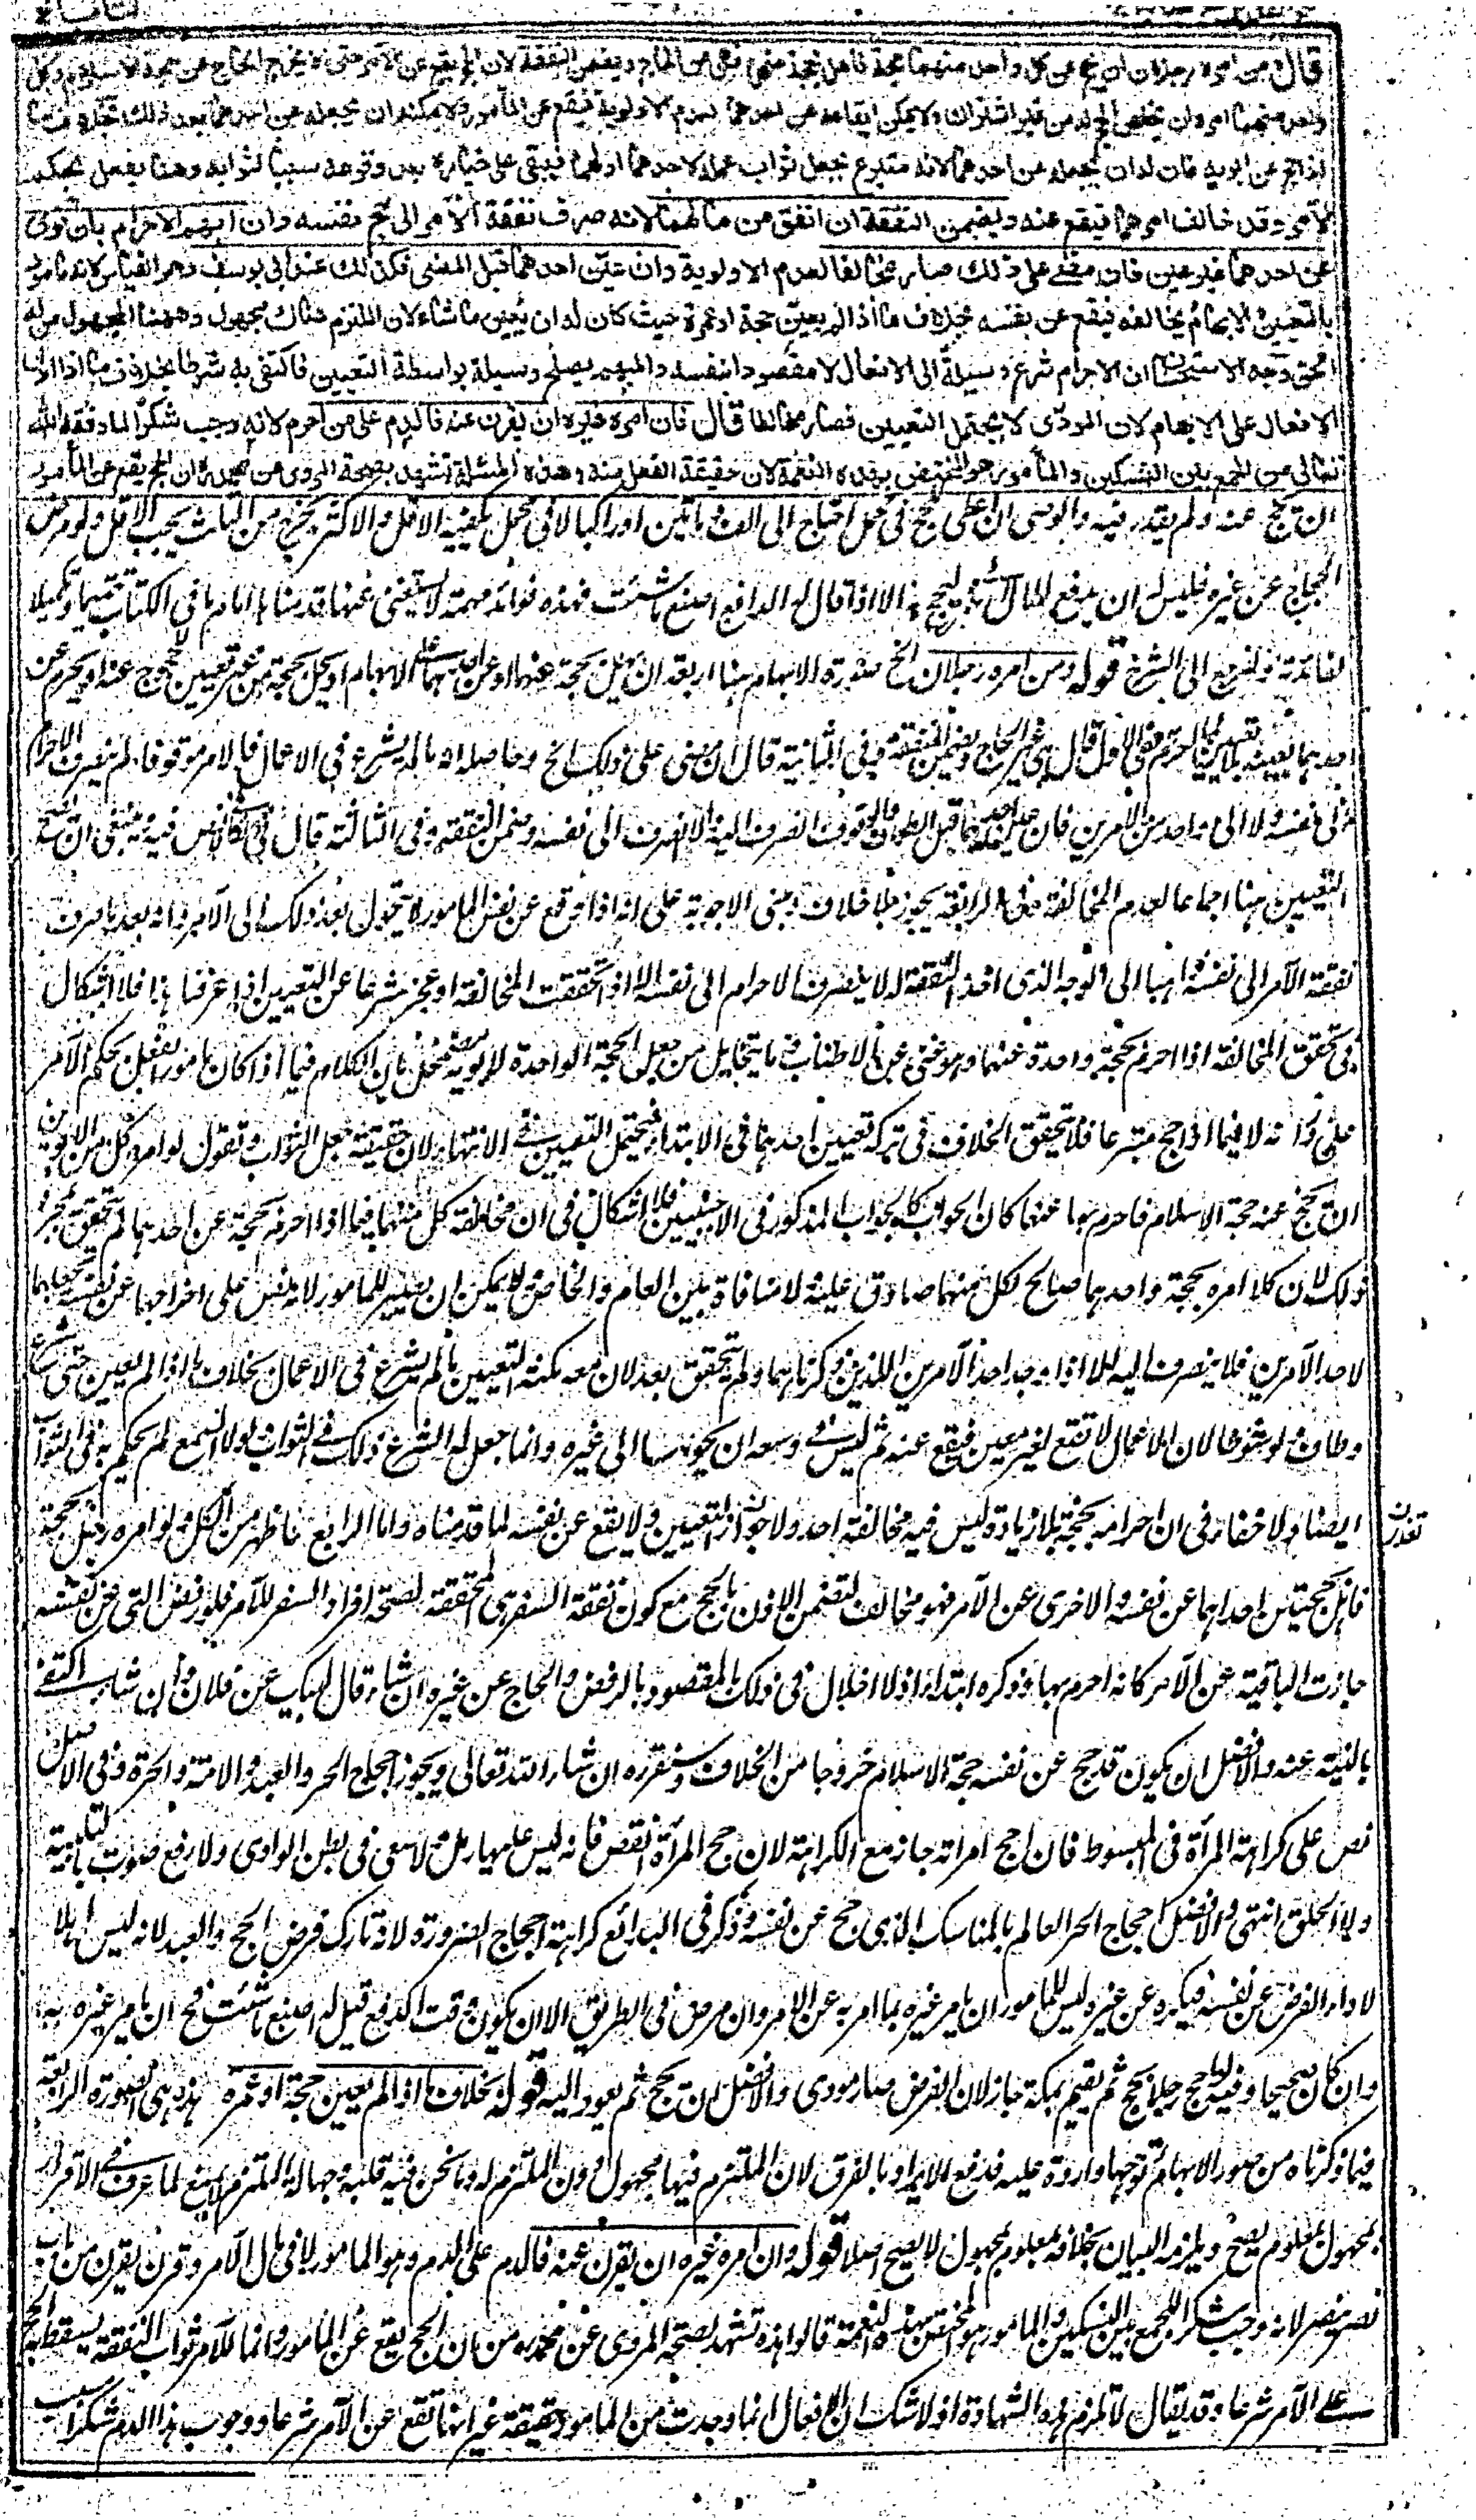 قال ومن امره رجلان ان يحج عن كل واحد منهما حجة فاهل بحجة عنهما فهى عن الحاج ويضمن النفقة لان الحج يقع عن الآمر حتى لا يخرج الحاج عن حجة الاسلام وكل
واحد منهما امره ان يخلص الحج له من غير اشتراك ولا يمكن ايقاعه عن احدهما لعدم الاولوية فيقع عن المأمور ولا يمكنه ان يجعله عن احدهما بعد ذلك بخلاف ما
اذا حج عن ابويه فان له ان يجعله عن احدهما لانه متبرع بجعل ثواب عمله لاحدهما او لهما فيبقى على خياره بعد وقوعه سببا لثوابه وهنا يفعل بحكم
الآمر وقد خالف امرهما فيقع عنه ويضمن النفقة ان انفق من مالهما لانه صرف نفقة الآمر الى حج نفسه وان ابهم الاحرام بان نوى
عن احدهما غير عين فان مضى على ذلك صار مخالفا لعدم الاولوية وان عين احدهما قبل المضى فكذلك عند ابى يوسف وهو القياس لانه مامور
بالتعيين والابهام يخالفه فيقع عن نفسه بخلاف ما اذا لم يعين حجة او عمرة حيث كان له ان يعين ما شاء لان الملتزم هناك مجهول وههنا المجهول من له
الحق وجه الاستحسان ان الاحرام شرع وسيلة الى الافعال لا مقصودا بنفسه والمبهم يصلح وسيلة بواسطة التعيين فاكتفى به شرطا بخلاف ما اذا ادى
الافعال على الابهام لان المودى لا يحتمل التعيين فصار مخالفا قال فان امره غيره ان يقرن عنه فالدم على من احرم لانه وجب شكرا لما وفقه الله
تعالى من الجمع بين النسكين والمأمور هو المختص بهذه النعمة لان حقيقة الفعل منه وهذه المسئلة تشهد بصحة المروى عن محمد ان الحج يقع عن المأمور
ان يحج عنه ولم يقدر فيه والوصى ان اعطى يحج فى محمل احتاج الى الف ومأتين او راكبا لا فى محمل يكفيه الاقل والاكثر يخرج من الثلث يجب الاقل ولو مرض
الحاج عن غيره فليس له ان يدفع المال الى غيره ليحج الا اذا قال له الدافع اصنع ما شئت فهذه فوائد مهمة لا يستغنى عنها قدمناها امام ما فى الكتاب تتميما وتكميلا
لفائدته ولنرجع الى الشرح قوله ومن امره رجلان الخ صورة الابهام هنا اربعة ان يهل بحجة عنهما او عن احدهما على الابهام او يهل بحجة من غير تعيين المحجوج عنه او يحرم عن
احدهما بعينه بلا تعيين لما احرم به ففى الاول قال هى عن الحاج ويضمن النفقة وفى الثانية قال ان مضى على ذلك الخ وحاصله انه ما لم يشرع فى الاعمال فالامر موقوف لم ينصرف الاحرام
الى نفسه ولا الى واحد من الآمرين فان عين احدهما قبل الطواف والوقوف انصرف اليه والا انصرف الى نفسه وضمن النفقة وفى الثالثة قال فى الكافى لا نص فيه وينبغى ان يصح
التعيين هنا اجماعا لعدم المخالفة وفى الرابعة يجوز بلا خلاف ومبنى الاجوبة على انه اذا وقع عن نفس المامور لا يتحول بعد ذلك الى الآمر وانه بعد ما صرف
نفقة الآمر الى نفسه ذاهبا الى الوجه الذى اخذ النفقة له لا ينصرف الاحرام الى نفسه الا اذا تحققت المخالفة او عجز شرعا عن التعيين اذا عرفنا هذا فلا اشكال
فى تحقق المخالفة اذا احرم بحجة واحدة عنهما وهو غنى عن الاطناب وما يتخايل من جعل الحجة الواحدة لابويه مضمحل بان الكلام فيما اذا كان مامورا يفعل بحكم الآمر
على وزانه لا فيما اذا حج متبرعا فلا يتحقق الخلاف فى تركه تعيين احدهما فى الابتداء فيحتمل التعيين فى الانتهاء لان حقيقته جعل الثواب ونقول لو امره كل من الابوين
ان يحج عنه حجة الاسلام فاحرم بها عنهما كان الجواب كالجواب المذكور فى الاجنبيين فلا اشكال فى ان مخالفة كل منهما فيما اذا احرم بحجة عن احدهما لم تتحقق بمجرد
ذلك لان كلا امره بحجة واحدهما صالح لكل منهما صادق عليه ولا منافاة بين العام والخاص ولا يمكن ان تصير للمامور لانه نص على اخراجها عن نفسه بجعلها
لاحد الآمرين فلا ينصرف اليه الا اذا وجد احد الآمرين اللذين ذكرناهما ولم يتحقق بعد لان معه مكنة التعيين ما لم يشرع فى الاعمال بخلاف ما اذا لم يعين حتى شرع
وطاف ولو شوطا لان الاعمال لا تقع لغير معين فيقع عنه ثم ليس فى وسعه ان يحولها الى غيره وانما جعل له الشرع ذلك فى الثواب ولولا السمع لم يحكم به فى الثواب
ايضا ولا خفاء فى ان احرامه بحجة بلا زيادة ليس فيه مخالفة احد ولا تعذر التعيين ولا يقع عن نفسه لما قدمناه واما الرابع فاظهر من الكل ولو امره رجل بحجة
فاهل بحجتين احداهما عن نفسه والاخرى عن الآمر فهو مخالف لتضمن الاذن بالحج مع كون نفقة السفر هى المحققة لصحة افراد السفر للآمر فلو رفض التى عن نفسه
جازت الباقية عن الآمر كانه احرم بها وحدها ابتداء اذ لا اخلال فى ذلك بالمقصود بالرفض والحاج عن غيره ان شاء قال لبيك عن فلان وان شاء اكتفى
بالنية عنه والافضل ان يكون قد حج عن نفسه حجة الاسلام خروجا من الخلاف وسنقرره ان شاء الله تعالى ويجوز احجاج الحر والعبد والامة والحرة وفى الاصل
نص على كراهة المرأة فى المبسوط فان احج امرأة جاز مع الكراهة لان حج المرأة انقص فانه ليس عليها رمل ولا سعى فى بطن الوادى ولا رفع صوت بالتلبية
ولا الحلق انتهى والافضل احجاج الحر العالم بالمناسك الذى حج عن نفسه وذكر فى البدائع كراهة احجاج الصرورة لانه تارك فرض الحج والعبد لانه ليس اهلا
لاداء الفرض عن نفسه فيكره عن غيره وليس للمامور ان يامر غيره بما امر به عن الآمر وان مرض فى الطريق الا ان يكون وقت الدفع قيل له اصنع ما شئت فحينئذ له ان يامر غيره به
وان كان صحيحا وفيه لو احج رجلا يحج ثم يقيم بمكة جاز لان الفرض صار مودى والافضل ان يحج ثم يعود اليه قوله بخلاف ما اذا لم يعين حجة او عمرة هذه هى الصورة الرابعة
فيما ذكرناه من صور الابهام توجهها واردة عليه فدفع الايراد بالفرق لان الملتزم فيها مجهول دون الملتزم له وما نحن فيه قلبه وجهالة الملتزم لا تمنع لما عرف فى الاقرار
بمجهول لمعلوم يصح ويلزمه البيان بخلافه بمعلوم لمجهول لا يصح اصلا قوله وان امره غيره ان يقرن عنه فالدم على المحرم وهو المامور لا فى مال الآمر وقرن يقرن من باب
نصر ينصر لانه وجب شكرا للجمع بين النسكين والمامور هو المختص بهذه النعمة قالوا هذه تشهد لصحة المروى عن محمد ره من ان الحج يقع عن المأمور وانما للآمر ثواب النفقة يسقط به الحج
على الآمر شرعا وقد يقال لا تلزم هذه الشهادة اذ لا شك ان الافعال انما وجدت من المامور حقيقة غير انها تقع عن الآمر شرعا ووجوب هذا الدم شكرا سبب